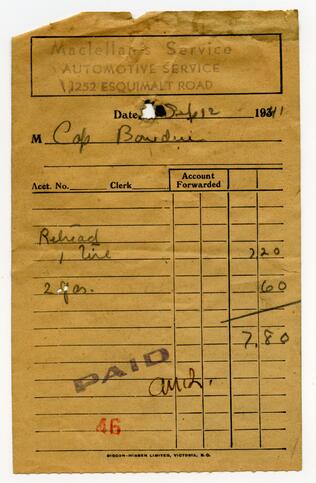 Maclellan's Service
AUTOMOTIVE SERVICE
1252 ESQUIMALT ROAD
Date Sep 12 1941
M Cap
Acct. No. Clerk Account Forwarded
Retread
1 Tire 7 20
2 gas. 60
7,80
PAID
46
DIGGON-HIBBEN LIMITED, VICTORIA, B.C.